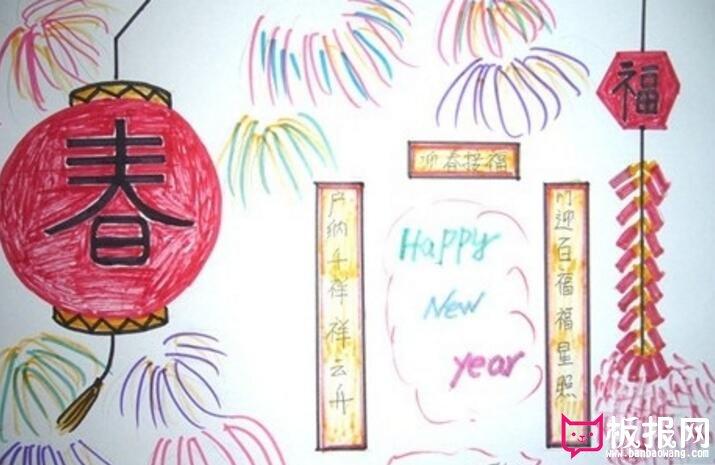 春
福
迎春接福
户纳千祥祥云
门迎百福福星照
Happy
New
year
板报网
www.banbaowang.com